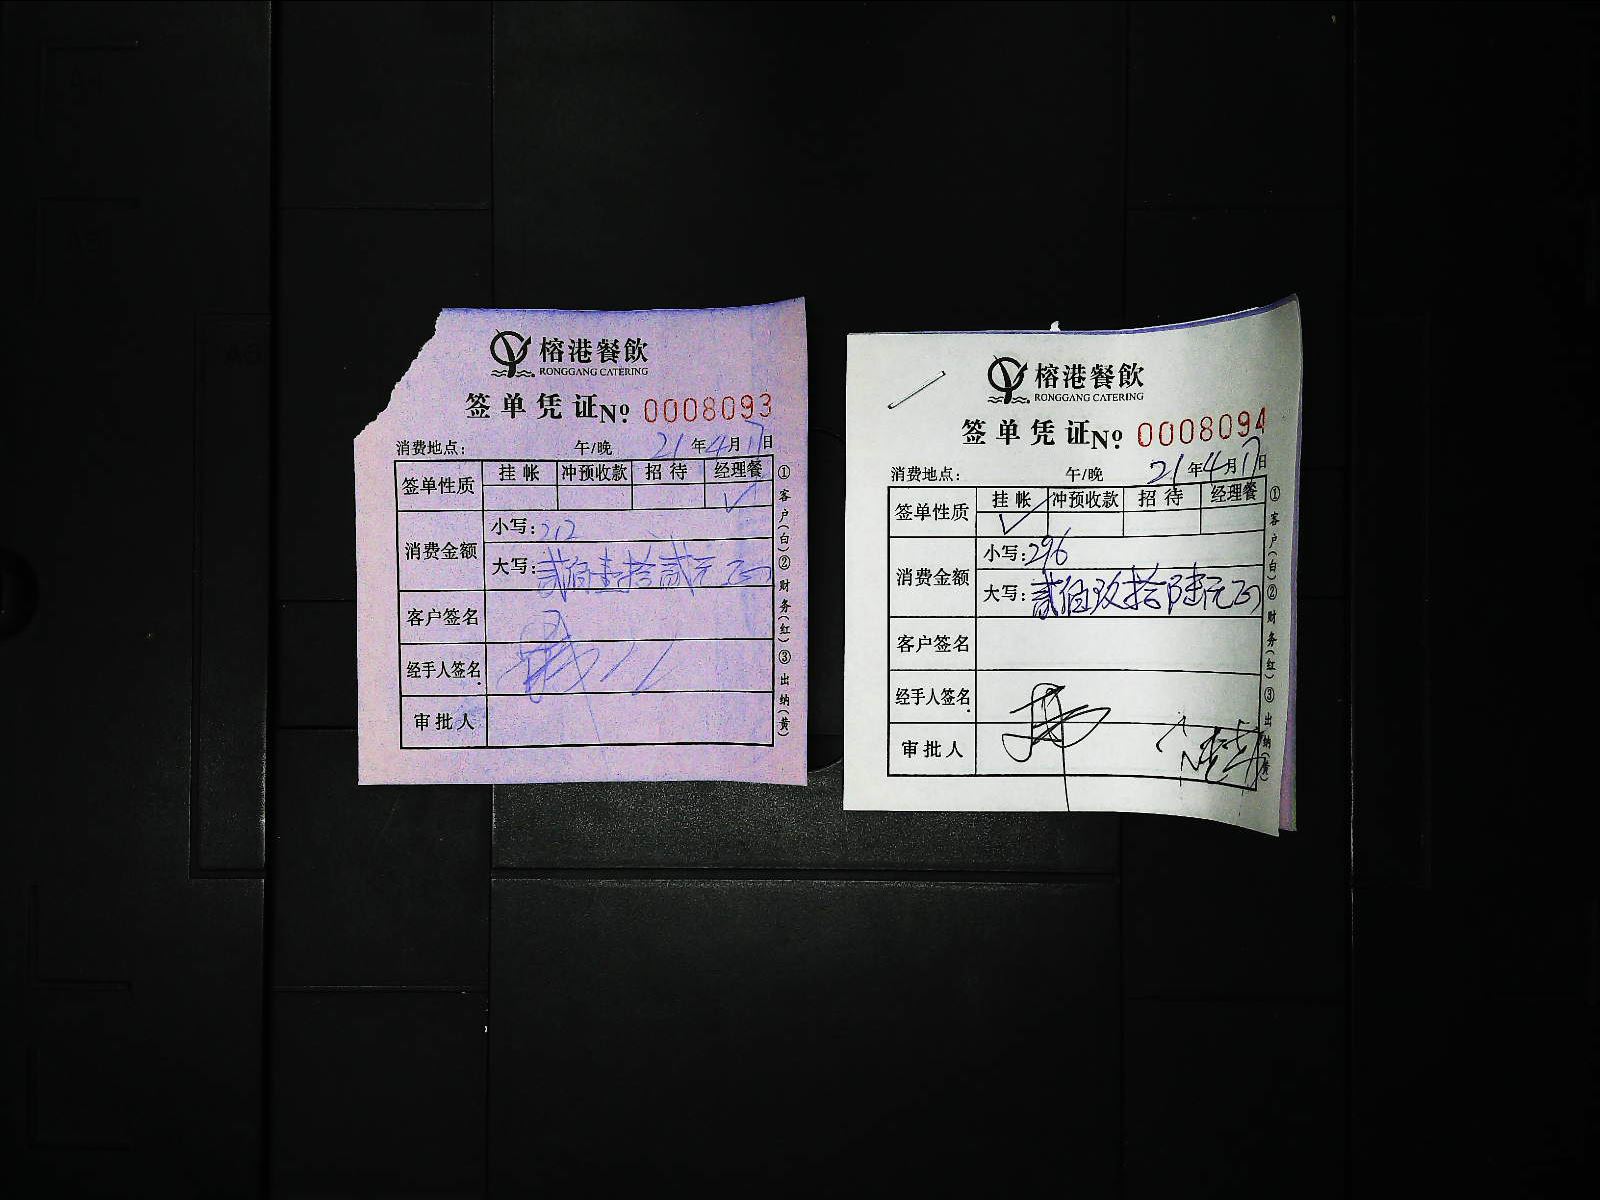 榕港餐飲
RONGGANG CATERING
签单凭证 No 0008093
消费地点: 午/晚 21年4月17日
签单性质 挂帐 冲预收款 招待 经理餐
✓
消费金额
小写: 212
大写: 贰佰壹拾贰元正
客户签名
经手人签名
审批人
①客户(白)②财务(红)③出纳(黄)
榕港餐飲
RONGGANG CATERING
签单凭证 No 0008094
消费地点: 午/晚 21年4月17日
签单性质 挂帐 冲预收款 招待 经理餐
✓
消费金额
小写: 296
大写: 贰佰玖拾陆元正
客户签名
经手人签名
审批人
①客户(白)②财务(红)③出纳(黄)